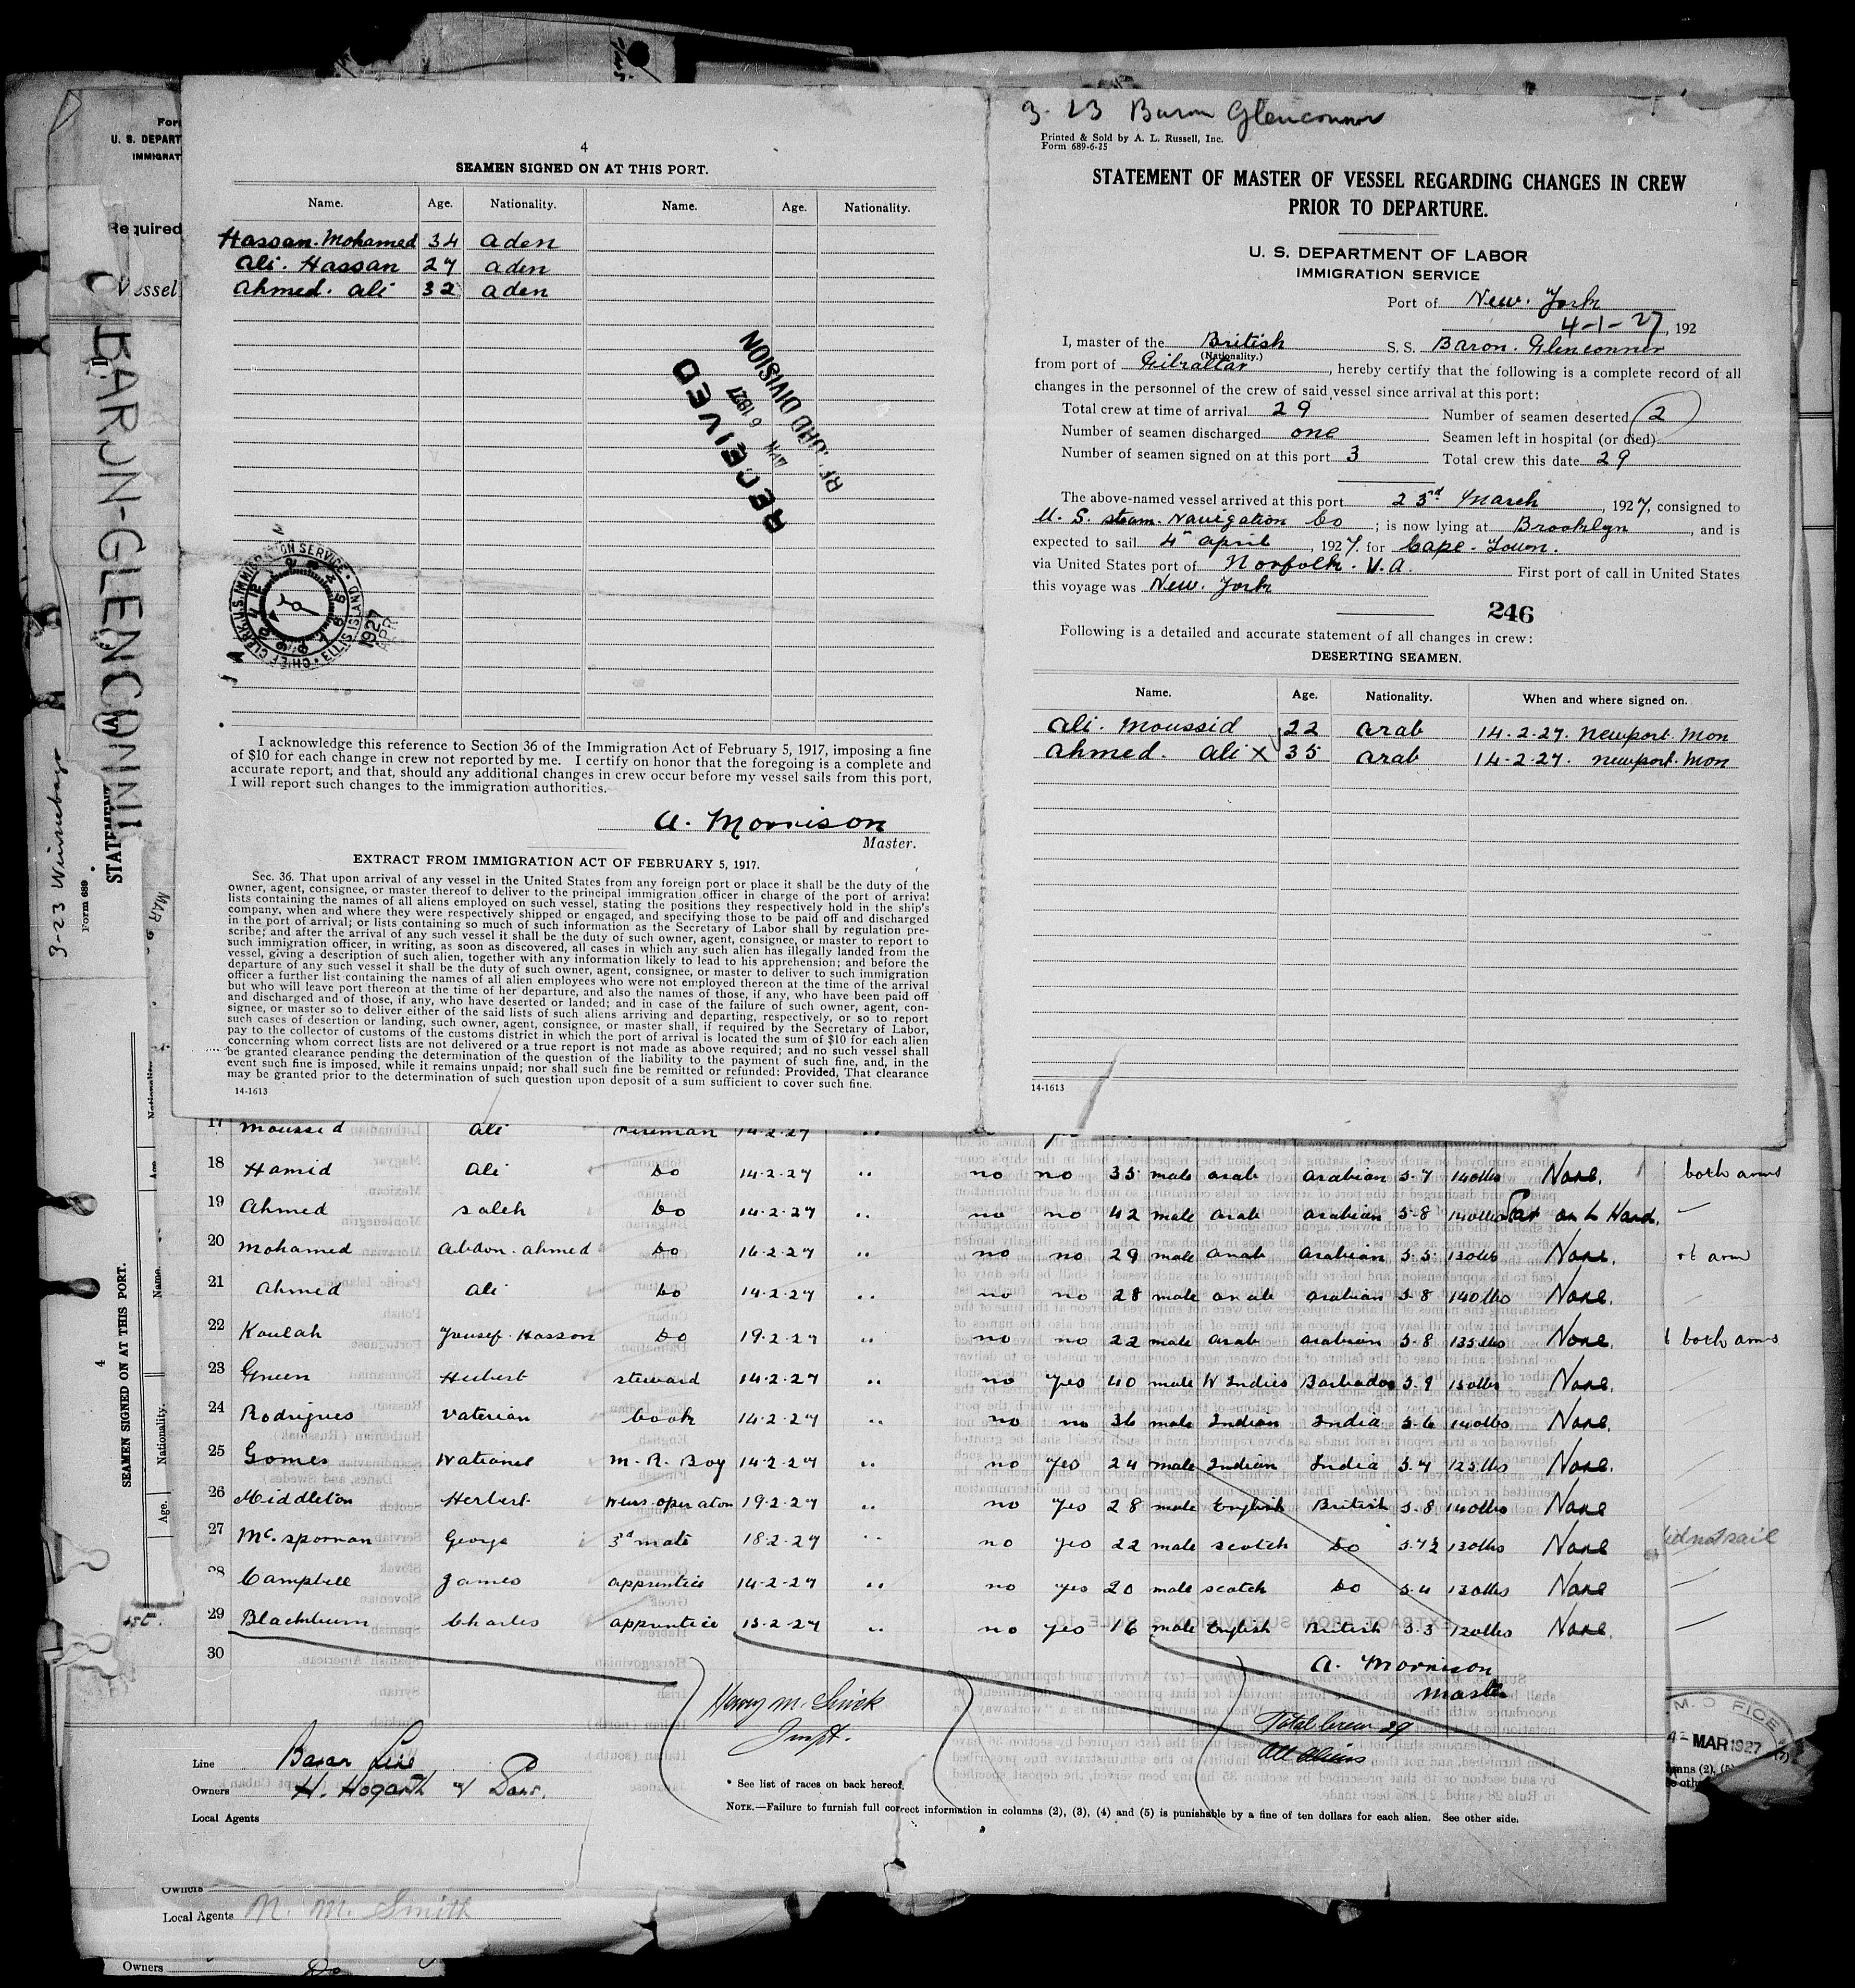 4
SEAMEN SIGNED ON AT THIS PORT.
Name. Age. Nationality. Name. Age. Nationality.
Hassan. Mohamed 34 aden
ali. Hassan 27 aden
ahmed. ali 32 aden
RECEIVED
DIVISION
CHIEF CLERK U.S. IMMIGRATION SERVICE • ELLIS ISLAND
APR
1927
I acknowledge this reference to Section 36 of the Immigration Act of February 5, 1917, imposing a fine
of $10 for each change in crew not reported by me. I certify on honor that the foregoing is a complete and
accurate report, and that, should any additional changes in crew occur before my vessel sails from this port,
I will report such changes to the immigration authorities.
A. Morrison
Master.
EXTRACT FROM IMMIGRATION ACT OF FEBRUARY 5, 1917.
Sec. 36. That upon arrival of any vessel in the United States from any foreign port or place it shall be the duty of the
owner, agent, consignee, or master thereof to deliver to the principal immigration officer in charge of the port of arrival
lists containing the names of all aliens employed on such vessel, stating the positions they respectively hold in the ship's
company, when and where they were respectively shipped or engaged, and specifying those to be paid off and discharged
in the port of arrival; or lists containing so much of such information as the Secretary of Labor shall by regulation pre-
scribe; and after the arrival of any such vessel it shall be the duty of such owner, agent, consignee, or master to report to
such immigration officer, in writing, as soon as discovered, all cases in which any such alien has illegally landed from the
vessel, giving a description of such alien, together with any information likely to lead to his apprehension; and before the
departure of any such vessel it shall be the duty of such owner, agent, consignee, or master to deliver to such immigration
officer a further list containing the names of all alien employees who were not employed thereon at the time of the arrival
but who will leave port thereon at the time of her departure, and also the names of those, if any, who have been paid off
and discharged and of those, if any, who have deserted or landed; and in case of the failure of such owner, agent, con-
signee, or master so to deliver either of the said lists of such aliens arriving and departing, respectively, or so to report
such cases of desertion or landing, such owner, agent, consignee, or master shall, if required by the Secretary of Labor,
pay to the collector of customs of the customs district in which the port of arrival is located the sum of $10 for each alien
concerning whom correct lists are not delivered or a true report is not made as above required; and no such vessel shall
be granted clearance pending the determination of the question of the liability to the payment of such fine, and, in the
event such fine is imposed, while it remains unpaid; nor shall such fine be remitted or refunded: Provided, That clearance
may be granted prior to the determination of such question upon deposit of a sum sufficient to cover such fine.
14-1613
3-23 Baron Glenconner
Printed & Sold by A. L. Russell, Inc.
Form 689-6-25
STATEMENT OF MASTER OF VESSEL REGARDING CHANGES IN CREW
PRIOR TO DEPARTURE.
U. S. DEPARTMENT OF LABOR
IMMIGRATION SERVICE
Port of New. York
4-1-27, 192
I, master of the British S. S. Baron. Glenconner
(Nationality.)
from port of Gibraltar, hereby certify that the following is a complete record of all
changes in the personnel of the crew of said vessel since arrival at this port:
Total crew at time of arrival 29 Number of seamen deserted 2
Number of seamen discharged one Seamen left in hospital (or died)
Number of seamen signed on at this port 3 Total crew this date 29
The above-named vessel arrived at this port 23rd March, 1927, consigned to
U. S. steam. Navigation Co; is now lying at Brooklyn, and is
expected to sail 4th april, 1927. for Cape-Town.
via United States port of Norfolk. V.A. First port of call in United States
this voyage was New. York
246
Following is a detailed and accurate statement of all changes in crew:
DESERTING SEAMEN.
Name. Age. Nationality. When and where signed on.
ali. moussid 22 arab 14.2.27. newport. mon
ahmed. ali x 35 arab 14-2.27. newport. mon
14-1613
17 moussid ali fireman 14-2-27 ..
18 Hamid ali Do 14-2-27 .. no no 35 male arab arabian 5-7 140lbs None. both arms
19 ahmed saleh Do 14-2-27 .. no no 42 male arab arabian 5-8 140lbs Scar on L Hand.
20 mohamed abdon. ahmed Do 16-2-27 .. no no 29 male arab arabian 5.5 130lbs None. rt arm
21 ahmed ali Do 14-2-27 .. no no 28 male arab arabian 5-8 140lbs None.
22 Kaulah Yousef. Hasson Do 19-2-27 .. no no 22 male arab arabian 5-8 135lbs None. both arms
23 Green Herbert steward 14-2-27 .. no yes 40 male W Indies Barbados 5.9 150lbs None.
24 Rodrigues Valerian Cook 14-2-27 .. no no 36 male Indian India 5-6 140lbs None.
25 Gomes Nationel M. R. Boy 14-2-27 .. no yes 24 male Indian India 5-4 125lbs None.
26 Middleton Herbert Wires operator 19-2-27 .. no yes 28 male English British 5.8 140lbs None.
27 Mc. spornan George 3d mate 18.2-27 .. no yes 22 male scotch Do 5.7½ 130lbs None did not sail
28 Campbell James apprentice 14-2-27 .. no yes 20 male scotch Do 5.4 130lbs None
29 Blackburn Charles apprentice 15-2-27 .. no yes 16 male English British 5.3 120lbs None.
30
A. Morrison
Master
Total Crew 29
All Aliens
Line Baron Line
Owners H. Hogarth
Local Agents
* See list of races on back hereof.
NOTE.—Failure to furnish full correct information in columns (2), (3), (4) and (5) is punishable by a fine of ten dollars for each alien. See other side.
MAR 1927
Owners
Local Agents N. M. Smith
Owners
U. S. DEPART
IMMIGRAT
Required
Vessel
BARON-GLENCONNER
3-23 Winnebago
Form 689
STATEMENT
MAR
4
SEAMEN SIGNED ON AT THIS PORT.
Name. Nationality. Age.